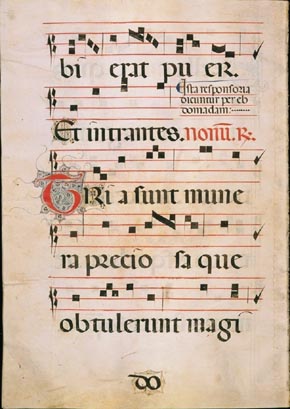 bi erat pu er.
Ista responsoria
dicuntur per eb
domadam:
Et intrantes. nonū. R.
TRi a sunt mune
ra precio sa que
obtulerunt magi